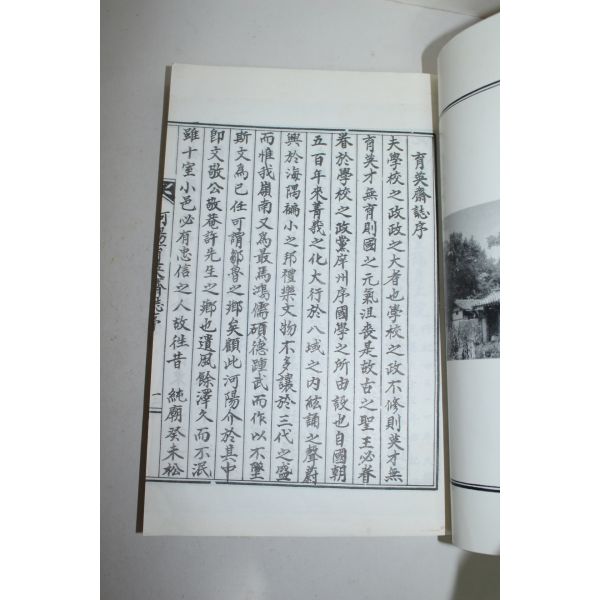 育英齋誌序
夫學校之政政之大者也學校之政不修則英才無
育英才無育則國之元氣沮喪是故古之聖王必眷
眷於學校之政黨庠州序國學之所由設也自國朝
五百年來菁莪之化大行於八域之內絃誦之聲蔚
興於海隅褊小之邦禮樂文物不多讓於三代之盛
而惟我嶺南又爲最焉鴻儒碩德踵武而作以不墜
斯文爲己任可謂鄒魯之鄉矣顧此河陽介於其中
即文敬公敬菴許先生之鄉也遺風餘澤久而不泯
雖十室小邑必有忠信之人故往昔 純廟癸未松
河陽育英齋誌序 一